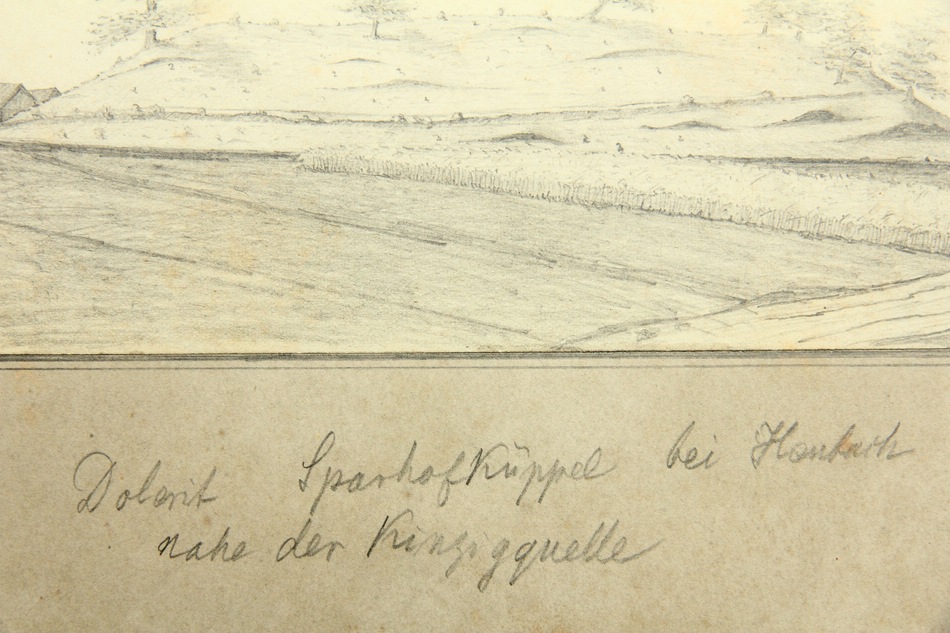 Dolerit Sparhofküppel bei Heubach
nahe der Kinzigquelle